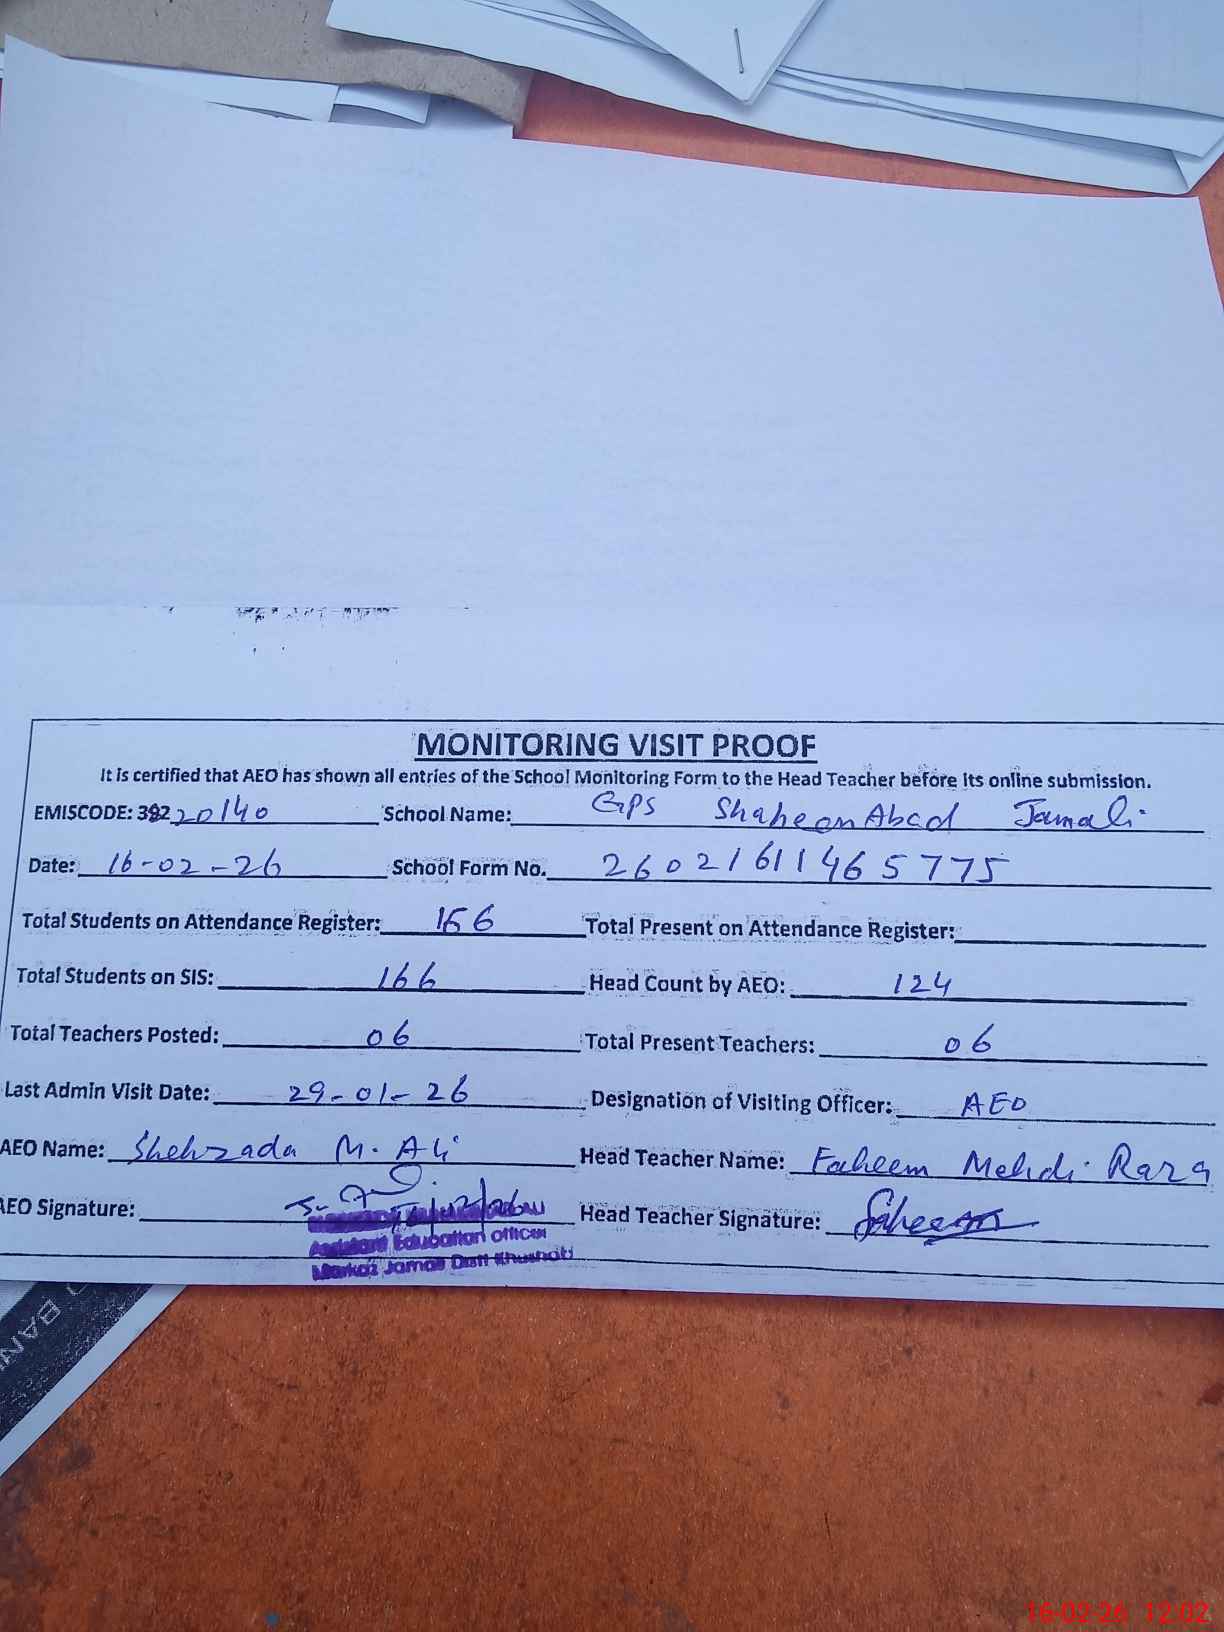 MONITORING VISIT PROOF
It is certified that AEO has shown all entries of the School Monitoring Form to the Head Teacher before its online submission.
EMISCODE: 39220140 School Name: GPS Shaheen Abad Jamali
Date: 16-02-26 School Form No. 26021611465775
Total Students on Attendance Register: 166 Total Present on Attendance Register:
Total Students on SIS: 166 Head Count by AEO: 124
Total Teachers Posted: 06 Total Present Teachers: 06
Last Admin Visit Date: 29-01-26 Designation of Visiting Officer: AEO
AEO Name: Shehzada M. Ali Head Teacher Name: Faheem Mehdi Raza
AEO Signature: Head Teacher Signature: Faheem
Assistant Education Officer
Markaz Jamali Distt Khushab
BAN
16-02-26 12:02